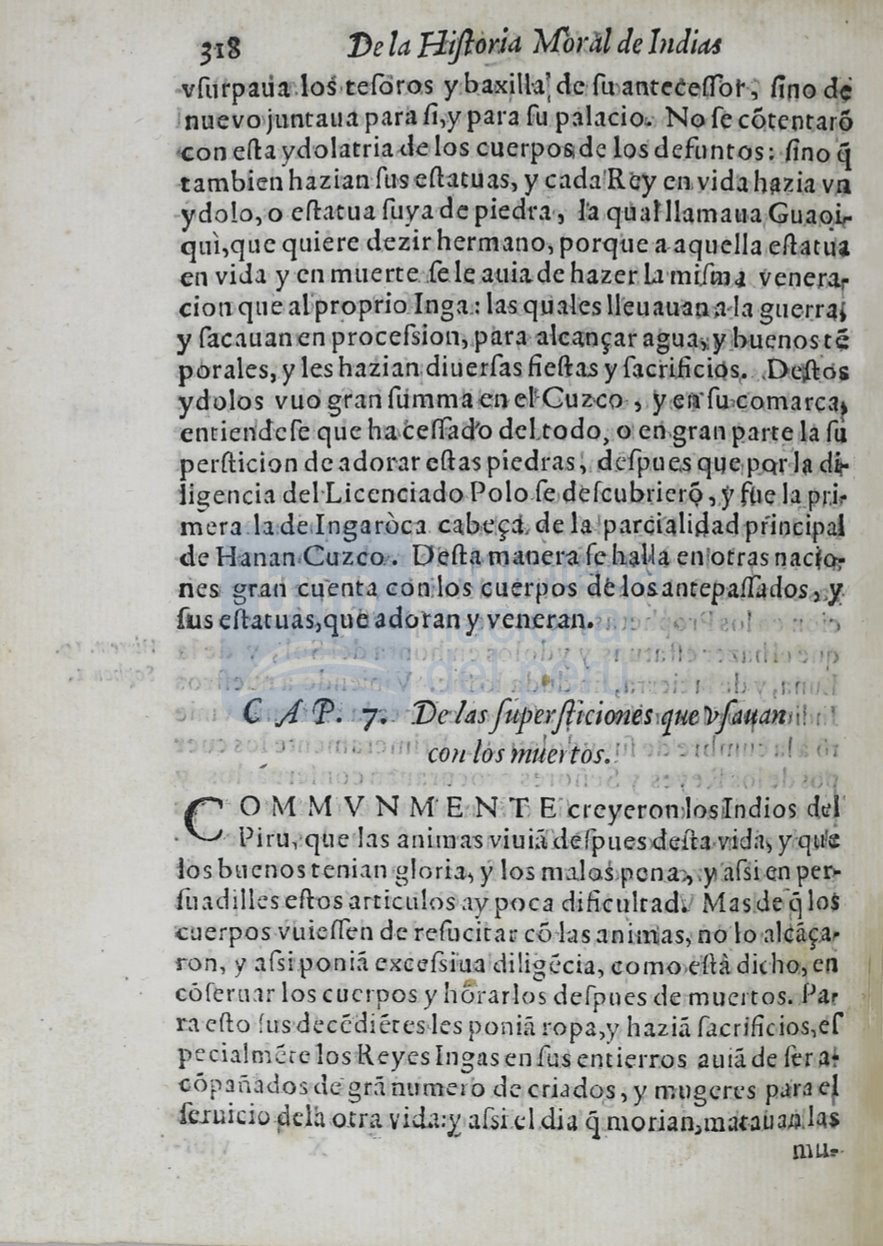 318 De la Hiſtoria Moral de Indias
vſurpaua los teſoros y baxilla de ſu anteceſſor, ſino de
nueuo juntaua para ſi, y para ſu palacio. No ſe cõtentarõ
con eſta ydolatria de los cuerpos de los defuntos: ſino q̃
tambien hazian ſus eſtatuas, y cada Rey en vida hazia vn
ydolo, o eſtatua ſuya de piedra, la qual llamaua Guaoi-
quì, que quiere dezir hermano, porque a aquella eſtatua
en vida y en muerte ſe le auia de hazer la miſma venera-
cion que al proprio Inga: las quales lleuauan a la guerra,
y ſacauan en proceſsion, para alcançar agua, y buenos tẽ
porales, y les hazian diuerſas fieſtas y ſacrificios. Deſtos
ydolos vuo gran ſumma en el Cuzco, y en ſu comarca,
entiendeſe que ha ceſſado del todo, o en gran parte la ſu
perſticion de adorar eſtas piedras, deſpues que por la di-
ligencia del Licenciado Polo ſe deſcubrierõ, y fue la pri-
mera la de Ingaròca cabeça de la parcialidad principal
de Hanan Cuzco. Deſta manera ſe halla en otras nacio-
nes gran cuenta con los cuerpos de los antepaſſados, y
ſus eſtatuas, que adoran y veneran.
CAP. 7. De las ſuperſticiones que vſauan
con los muertos.
COMMVNMENTE creyeron los Indios del
Piru, que las animas viuiã deſpues deſta vida, y que
los buenos tenian gloria, y los malos pena, y aſsi en per-
ſuadilles eſtos articulos ay poca dificultad. Mas de q̃ los
cuerpos vuieſſen de reſucitar cõ las animas, no lo alcãça-
ron, y aſsi poniã exceſsiua diligẽcia, como eſtà dicho, en
cõſeruar los cuerpos y hõrarlos deſpues de muertos. Pa-
ra eſto ſus decẽdiẽtes les poniã ropa, y haziã ſacrificios, eſ
pecialmẽte los Reyes Ingas en ſus entierros auiã de ſer a-
cõpañados de grã numero de criados, y mugeres para el
ſeruicio dela otra vida: y aſsi el dia q̃ morian, matauan las
mu-